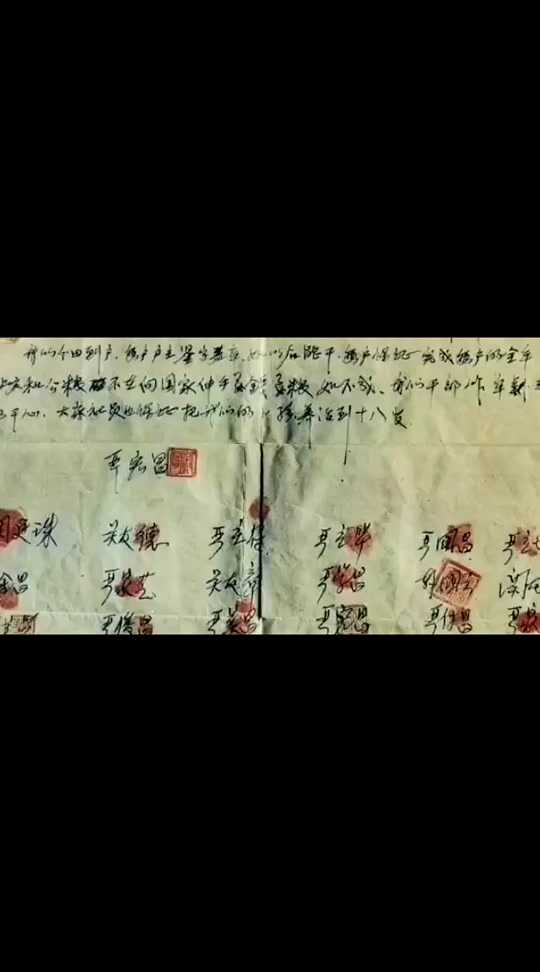 我们分田到户.每户户主签字盖章.如以后能干.每户保证完成每户的全年
上交和公粮 不在向国家伸手要钱要粮 如不成.我们干部作牢
也干心.大家社员也保证把我们的小孩养活到十八岁.
严宏昌
关廷珠 关友德 严立符 严立华 严国昌 严立
金昌 严家芝 关友章 严学昌 韩国云
严俊昌 严美昌 严宏昌 严付昌 严家